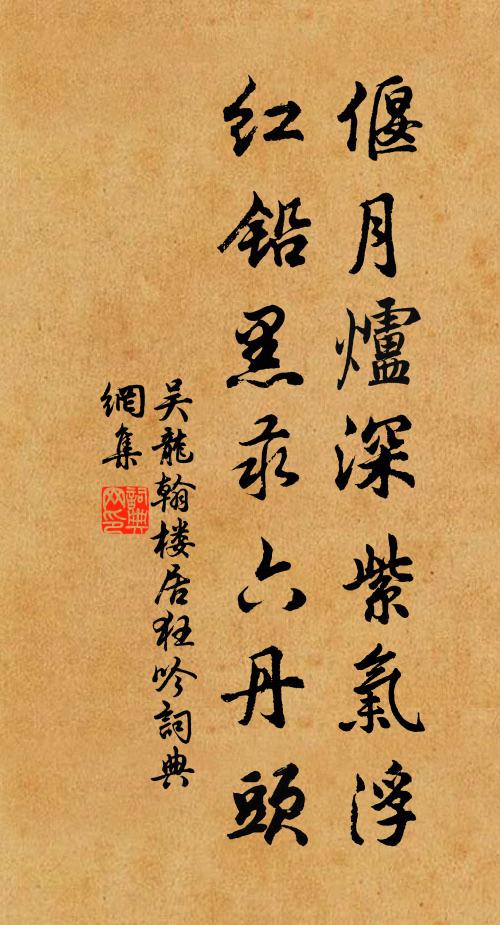 偃月爐深紫氣浮
紅鉛黑汞六丹頭
吴龍翰楼居狂吟詞典
網集
詞典
网印